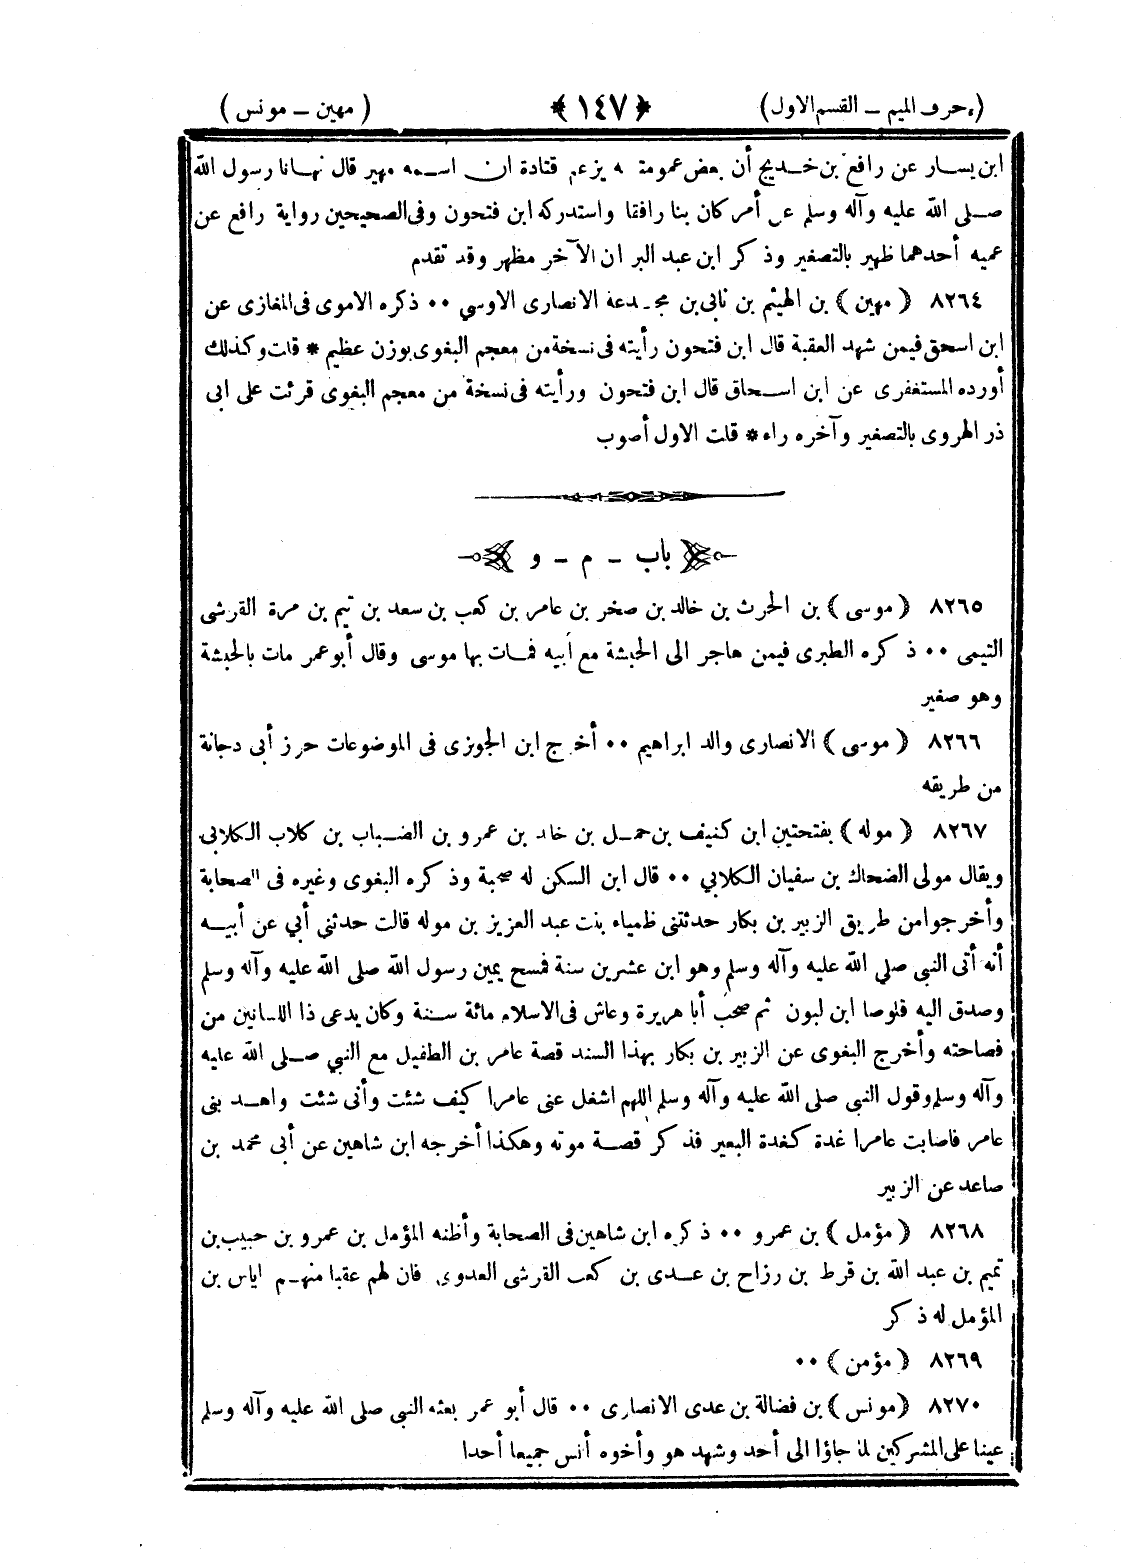 (حرف الميم ــ القسم الاول) ﴿١٤٧﴾ (مهين ــ مونس)
ابن يسار عن رافع بن خديج أن بعض عمومته يزعم قتادة ان اسمه مهير قال نهانا رسول الله
صلى الله عليه وآله وسلم عن أمر كان بنا رافقا واستدركه ابن فتحون وفى الصحيحين رواية رافع عن
عميه أحدهما ظهير بالتصغير وذكر ابن عبد البر ان الآخر مظهر وقد تقدم
٨٢٦٤ ﴿ مهين ﴾ بن الهيثم بن نابى بن مجدعة الانصارى الاوسي ٠٠ ذكره الاموى فى المغازى عن
ابن اسحق فيمن شهد العقبة قال ابن فتحون رأيته فى نسخة من معجم البغوى بوزن عظيم * قلت وكذلك
أورده المستغفرى عن ابن اسحاق قال ابن فتحون ورأيته فى نسخة من معجم البغوى قرئت على ابى
ذر الهروى بالتصغير وآخره راء * قلت الاول أصوب
باب ــ م ــ و
٨٢٦٥ ﴿ موسى ﴾ بن الحرث بن خالد بن صخر بن عامر بن كعب بن سعد بن تيم بن مرة القرشى
التيمى ٠٠ ذكره الطبرى فيمن هاجر الى الحبشة مع أبيه فمات بها موسى وقال أبو عمر مات بالحبشة
وهو صغير
٨٢٦٦ ﴿ موسى ﴾ الانصارى والد ابراهيم ٠٠ أخرج ابن الجوزى فى الموضوعات حرز أبى دجانة
من طريقه
٨٢٦٧ ﴿ موله ﴾ بفتحتين ابن كنيف بن حمل بن خالد بن عمرو بن الضباب بن كلاب الكلابى
ويقال مولى الضحاك بن سفيان الكلابي ٠٠ قال ابن السكن له صحبة وذكره البغوى وغيره فى الصحابة
وأخرجوا من طريق الزبير بن بكار حدثتنى ظمياء بنت عبد العزيز بن موله قالت حدثني أبي عن أبيه
أنه أتى النبي صلي الله عليه وآله وسلم وهو ابن عشرين سنة فمسح يمين رسول الله صلى الله عليه وآله وسلم
وصدق اليه قلوصا ابن لبون ثم صحب أبا هريرة وعاش فى الاسلام مائة سنة وكان يدعى ذا اللسانين من
فصاحته وأخرج البغوى عن الزبير بن بكار بهذا السند قصة عامر بن الطفيل مع النبي صلى الله عليه
وآله وسلم وقول النبى صلى الله عليه وآله وسلم اللهم اشغل عنى عامرا كيف شئت وأنى شئت واهد بنى
عامر فاصابت عامرا غدة كغدة البعير فذكر قصة موته وهكذا أخرجه ابن شاهين عن أبى محمد بن
صاعد عن الزبير
٨٢٦٨ ﴿ مؤمل ﴾ بن عمرو ٠٠ ذكره ابن شاهين فى الصحابة وأظنه المؤمل بن عمرو بن حبيب بن
تميم بن عبد الله بن قرط بن رزاح بن عدى بن كعب القرشى العدوى فان لهم عقبا منهم اياس بن
المؤمل له ذكر
٨٢٦٩ ﴿ مؤمن ﴾ ٠٠
٨٢٧٠ ﴿ مونس ﴾ بن فضالة بن عدى الانصارى ٠٠ قال أبو عمر بعثه النبى صلى الله عليه وآله وسلم
عينا على المشركين لما جاؤا الى أحد وشهد هو وأخوه أنس جميعا أحدا